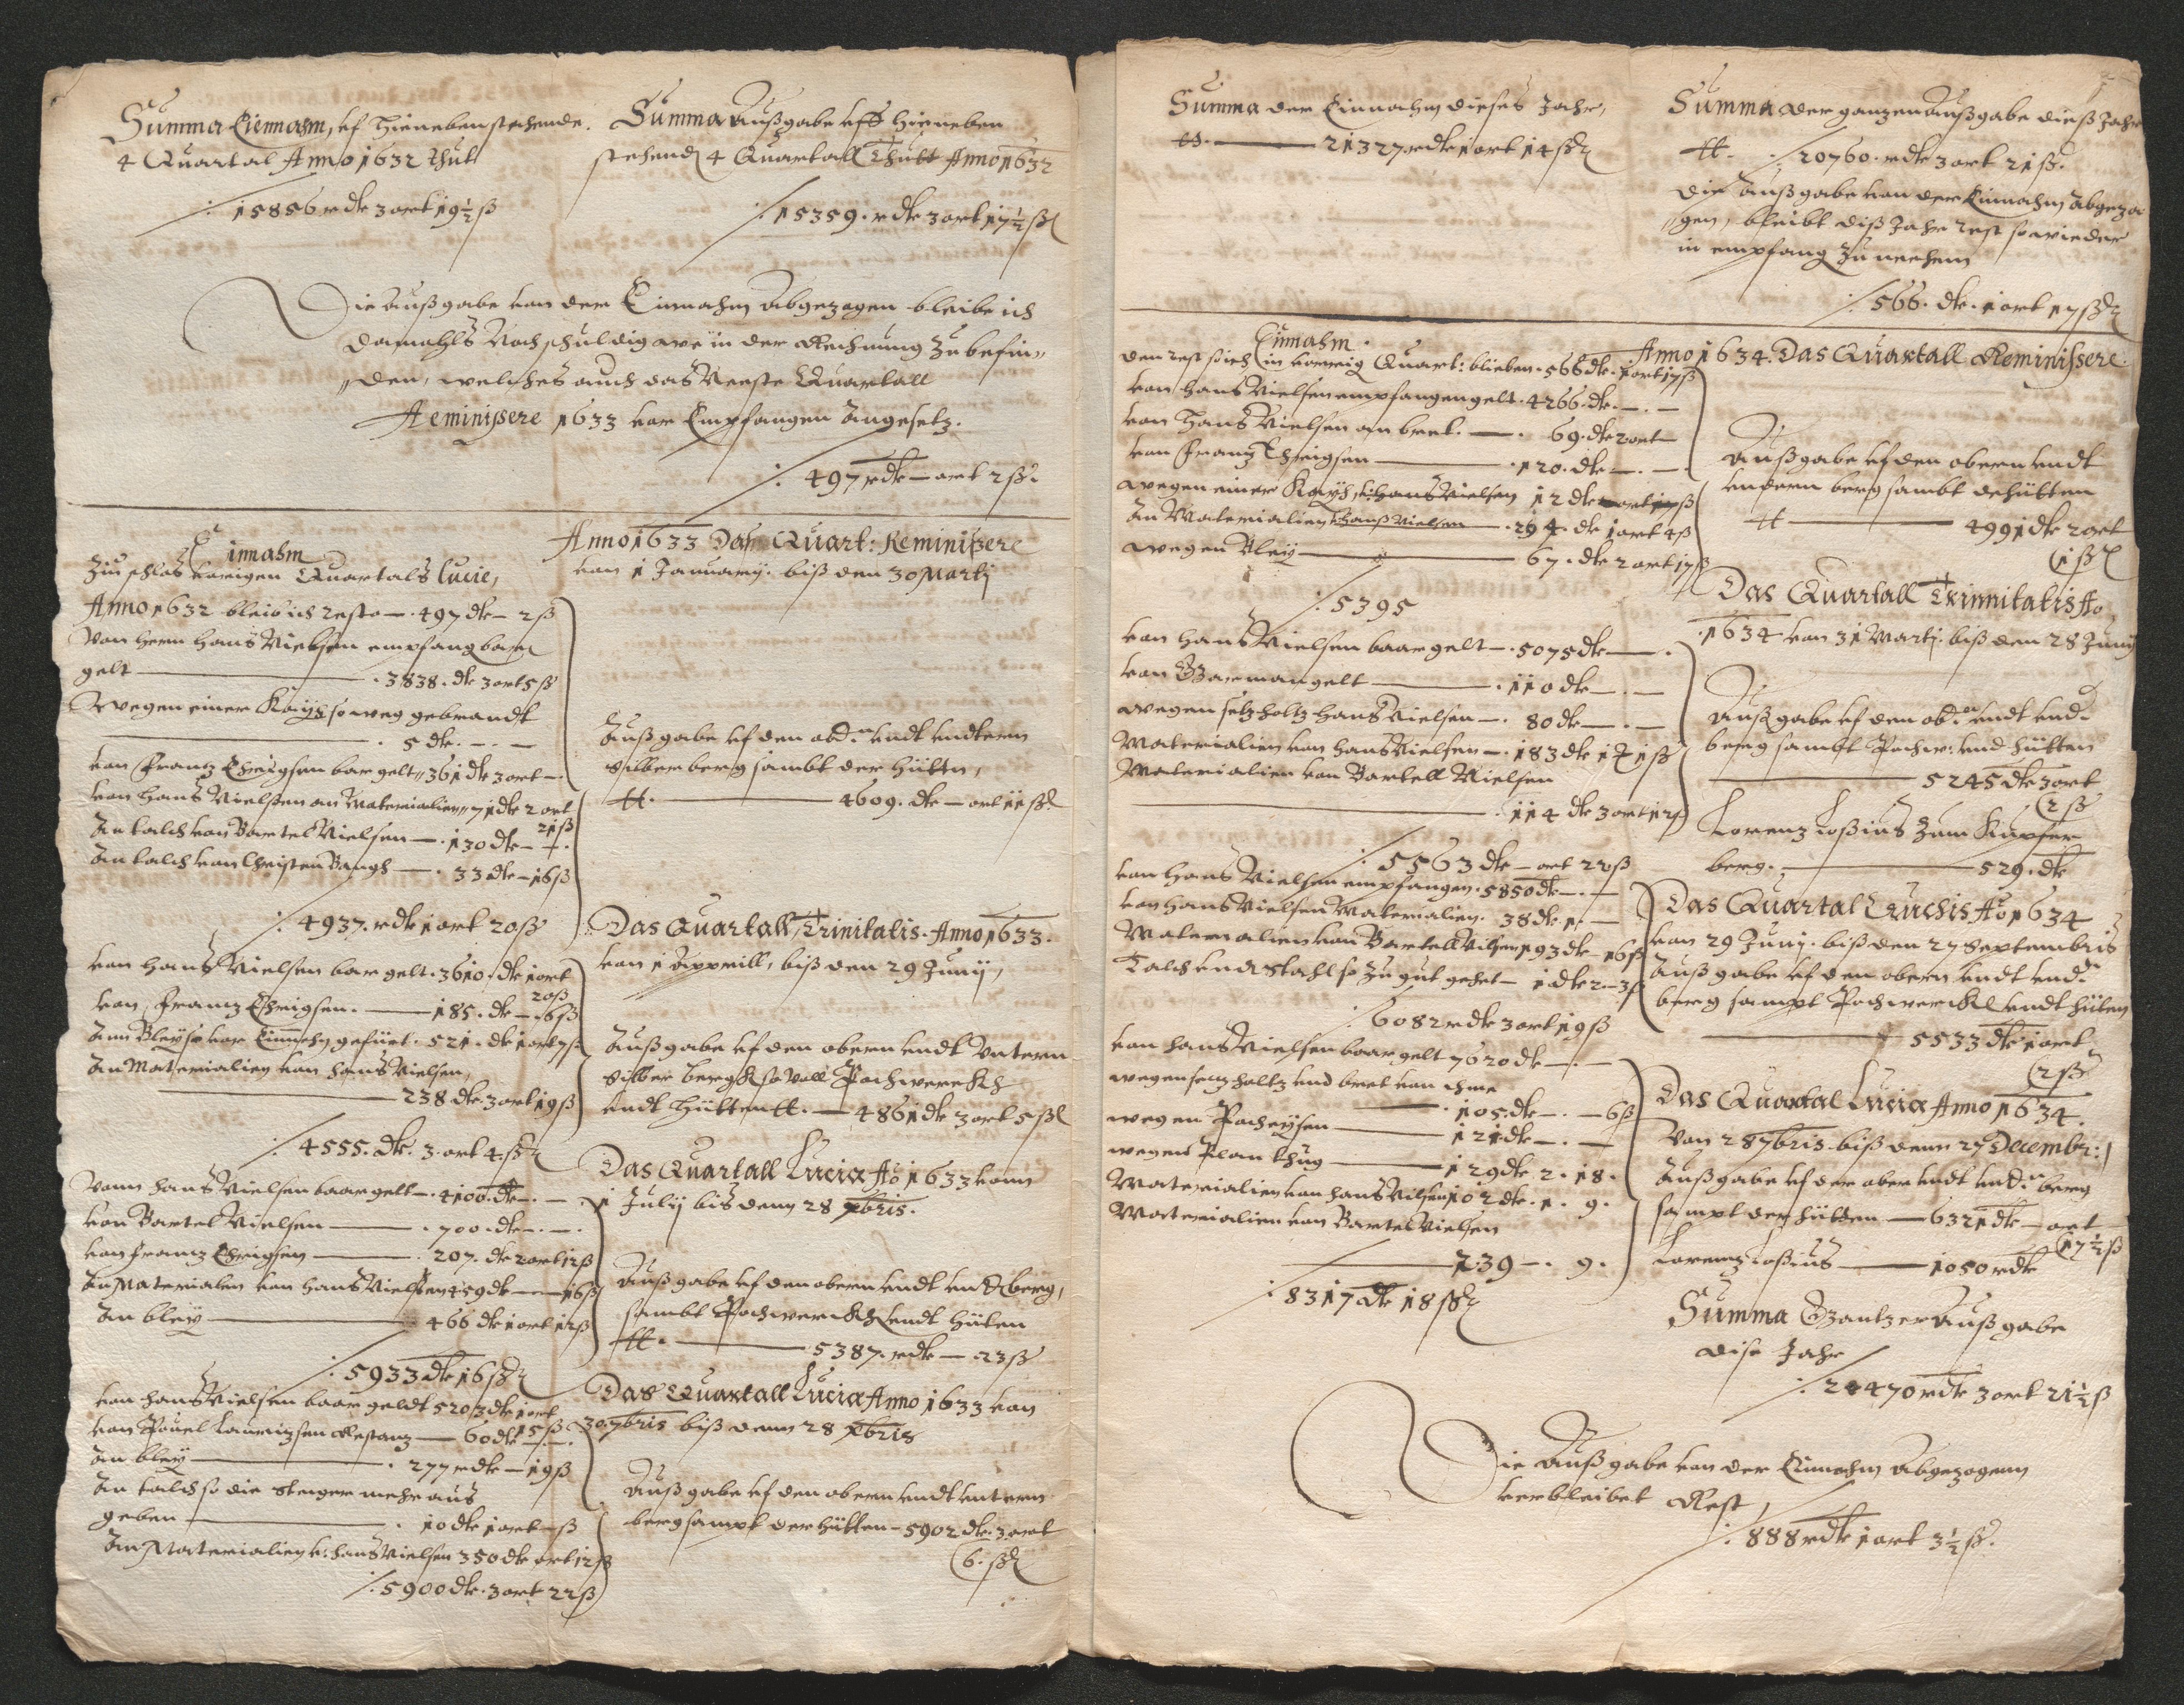 Summa Einnahm, uf hieneben stehende.
4 Quartal Anno 1632 thut
/: 15856 rdlr 3 ort 19½ ß
Summa Außgabe uff hieneben
stehend 4 Quartall Thutt Anno 1632
/: 15359. rdlr 3 ort 17½ ß
Die Außgabe von der Einnahm Abgezogen bleibe ich
damahls Noch schuldig wie in der Rechnung zu befin„
„den, welches auch das Neeste Quartall
Reminißere 1633 vor Empfangen Angesetz.
/: 497 rdlr — ort 2 ß.
Einnahm
Zum schlos vorigen Quartals Lucie,
Anno 1632 bleib ich Resta —. 497 dlr — 2 ß
Von Herrn Hans Nielsen empfang baar
gelt —. 3838. dlr 3 ort 5 ß
Wegen einer so weg gebrandt
—. 5 dlr. —. —
von Frantz bar gelt „ 361 dlr 3 ort —.
von Hans Nielßen an Materialien „ 71 dlr 2 ort
21 ß
An talch von Bartel Nielsen —. 130 dlr —
An talch von Christen Bangh —. 33 dlr — 16 ß
/: 4937. rdlr 1 ort 20 ß
von Hans Nielsen bar gelt. 3610. dlr 1 ort
20 ß
von Frantz —185. dlr — 6 ß
Ann Bley so vor Einnehm gefürt. 521. dlr 1 ort 7 ß
An Materialien von Hans Nielsen,
—238 dlr. 3 ort 19 ß
/: 4555. dlr. 3. ort 4. ß
Vonn Hans Nielsen baar gelt —. 4100. dlr —. —.
von Bartel Nielsen —. 700. dlr —. —.
von Frantz —. 207. dlr 2 ort 12 ß
An Materialen von Hans Nielsen 459 dlr — 16 ß
An bley — 466 dlr 1 ort 12 ß
/: 5933 dlr 16 ß
von Hans Nielsen baar geldt 5203 dlr 1 ort
15 ß
von Pouel Restanz — 60 dlr —.—.
An bley —. 277 rdlr — 19 ß
An talch so die Steiger mehr aus
geben —. 10 dlr 1 ort — ß
An Materialien v: Hans Nielsen 350 dlr ort 12 ß
/: 5900 dlr. 3 ort 22 ß
Anno 1633 Das Quart: Reminißere
von 1 January. biß den 30 Martj
Außgabe uf den ob.n undt undtern
Silberberg sambt der Hüttn,
tt. — 4609. dlr — ort 11 ß
Das Quartall, Trinitatis. Anno 1633.
von 1 Apprill, biß den 29 Junij,
Außgabe uf den obern undt Untern
Silber Bergk so Voll Pochwerckh
undt Hütten tt. — 4861 dlr 3 ort 5 ß
Das Quartall Lucia Ao 1633 vonn
1 Julij bis denn 28 bris.
Außgabe uf den obern undt und. berg,
sambt Pochwerckh undt Hüten
tt. — 5387. rdlr — 23 ß
Das Quartall Lucia Anno 1633 von
30. 7bris biß denn 28 Xbris
Außgabe uf den obern undt untern
berg sampt der Hütten — 5902 dlr. 3 ort
6. ß
Summa der Einnahm dieses Jahr,
tt. — 21327 rdlr 1 ort 14 ß
Summa der ganzen Außgabe dieß Jahr
tt. /: 20760. rdlr 3 ort 21 ß.
Die Außgabe von der Einnahm Abgezo
„gen, bleibt diß Jahr Rest so wieder
in empfang zu nehem
/: 566. dlr. 1 ort 17 ß
Einnahm.
Den Rest sich in vorrig Quart: blieben. 566 dlr. 1 ort 17 ß
von Hans Nielsen empfangen gelt. 4266. dlr. —. —
von Hans Nielsen an bret. —. 69. dlr 2 ort —
von Frantz —. 120. dlr —. —
wegen einer v: Hans Nielsen 12 dlr
An Materialien v: Hans Nielsen —. 294. dlr 1 ort 4 ß
wegen Bley — 67. dlr 2 ort 17 ß
/: 5395
von Hans Nielsen baar gelt —. 5075 dlr —.
von gelt —. 110 dlr —. —
wegen setz holtz Hans Nielsen —. 80 dlr —. —
Materialien von Hans Nielsen —. 183 dlr 1 ß
Materialien von Bartell Nielsen
—. 114 dlr 3 ort 12 ß
/: 5563 dlr — ort 22 ß
von Hans Nielsen empfangen. 5850 dlr —. —
von Hans Nielsen Materialien. 38 dlr 1. —
Materialien von Bartell Nilsen 193 dlr — 16 ß
Talch undt Stahl so zu gut gehet — 1 dlr 2 — 3 ß
/: 6082 rdlr 3 ort 19 ß
von Hans Nielsen baar gelt 7620 dlr —. —
wegen setz holtz und bret von ihme
—. 105. dlr —. — 6 ß
wegen Pocheysen — 121 dlr —. —
wegen — 129 dlr 2. 18.
Materialien von Hans Nilsen 102 dlr. 1. 9.
Materialien von Bartel Nielsen
— 239 —. 9.
/: 8317 dlr 18 ß
Anno 1634. Das Quartall Reminißere.
Außgabe uf den obern undt
undern berg sambt de Hütten
tt — 4991 dlr 2 ort
1 ß
Das Quartall Trinnitatis Ao
1634 von 31 Martj. biß den 28 Junij
Außgabe uf den ob.n undt und.
berg sambt Pochw: und Hütten
— 5245 dlr 3 ort
2 ß
Lorenz Loßius zum Kupfer
berg. — 529. dlr
Das Quartal Cruchis Ao 1634
von 29 Junij. biß den 27 Septembris
Außgabe uf den obern undt und.n
berg sampt Pochwerckh undt Hüten
— 5533 dlr 1 ort
2 ß
Das Quartal Lucia Anno 1634.
Von 28 7bris. biß denn 27 Decembr:
Außgabe uf der ober undt und.n berg
sampt der Hütten — 6321 dlr — ort
17½ ß
Lorentz Loßius — 1050 rdlr
Summa Gantzer Außgabe
diß Jahr
/: 24470 rdlr 3 ort 21½ ß
Die Außgabe von der Einnahm Abgezogenn
verbleibet Rest,
/: 888 rdlr 1 ort 3½ ß.